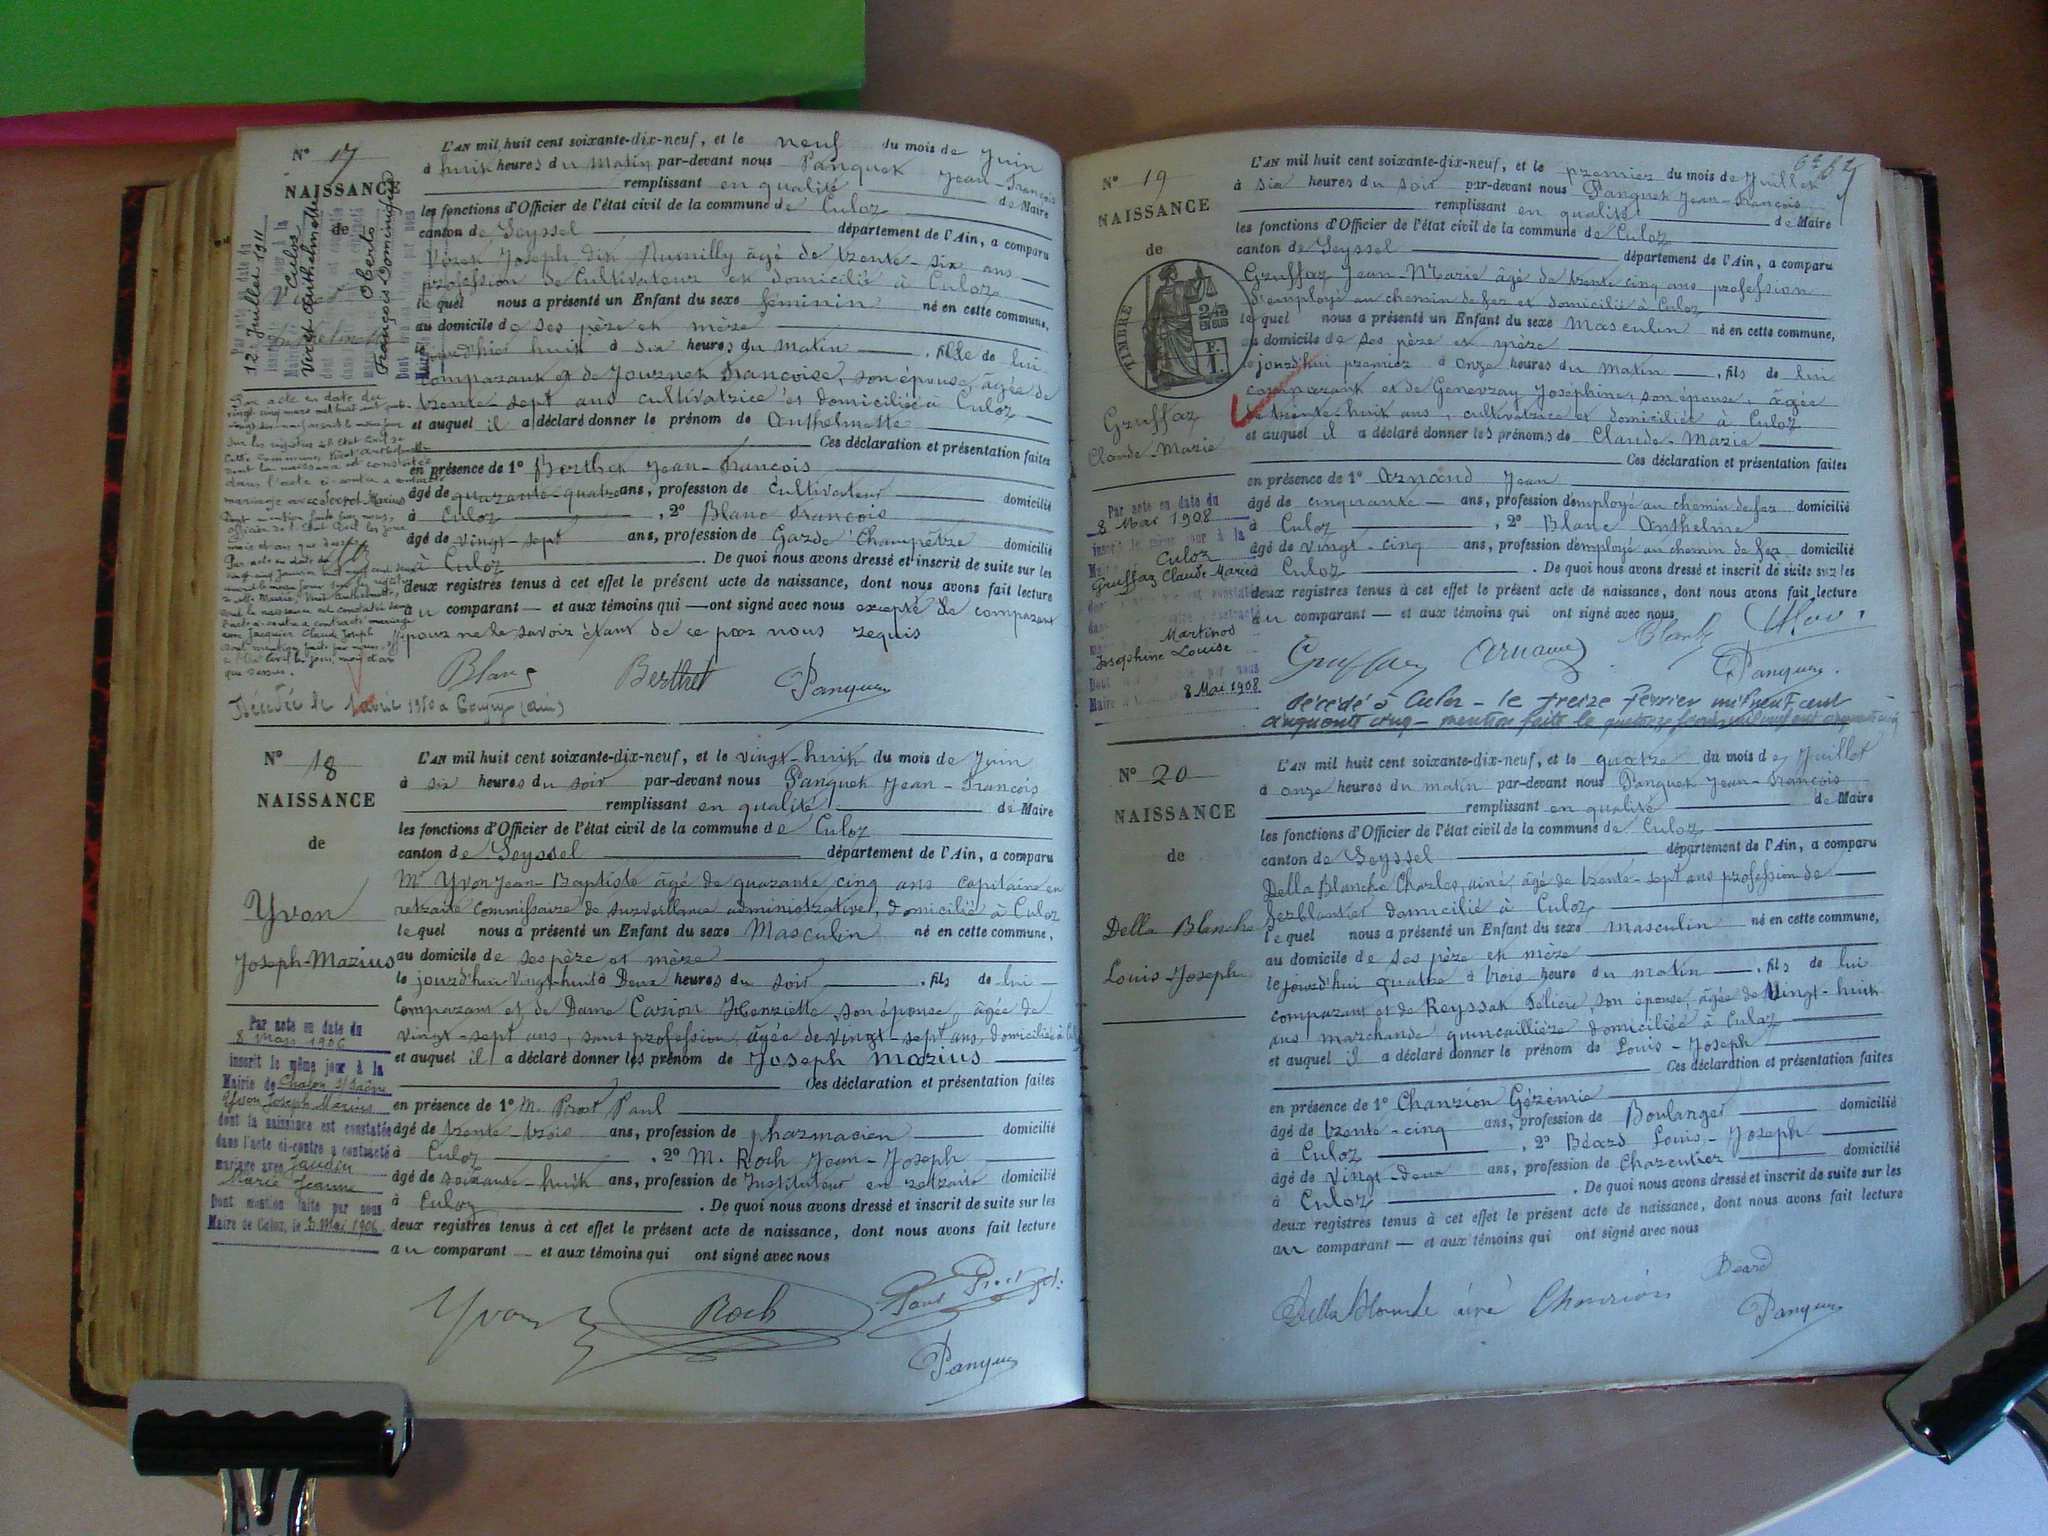 N° 17
NAISSANCE
de
12 Juillet 1911
Culoz
Viret Anthelmette
Oberto
François Dominique
L'AN mil huit cent soixante-dix-neuf, et le neuf du mois de Juin
à huit heures du matin par-devant nous Panquet Jean-François
remplissant en qualité de Maire
les fonctions d'Officier de l'état civil de la commune de Culoz
canton de Seyssel département de l'Ain, a comparu
Joseph dit Rumilly âgé de trente-six ans
profession de Cultivateur et domicilié à Culoz
lequel nous a présenté un Enfant du sexe féminin né en cette commune,
au domicile de ses père et mère
huit à six heures du matin , fille de lui
comparant et de Journet Françoise, son épouse, âgée de
trente-sept ans cultivatrice et domiciliée à Culoz
et auquel il a déclaré donner le prénom de Anthelmette
Ces déclaration et présentation faites
en présence de 1° Berthet Jean-François
âgé de quarante-quatre ans, profession de Cultivateur domicilié
à Culoz , 2° Blanc François
âgé de vingt-sept ans, profession de Garde Champêtre domicilié
à Culoz . De quoi nous avons dressé et inscrit de suite sur les
deux registres tenus à cet effet le présent acte de naissance, dont nous avons fait lecture
au comparant — et aux témoins qui — ont signé avec nous excepté le comparant
pour ne le savoir étant de ce par nous requis
Par acte en date du
mariage avec
Par acte en date du
Jacquier Claude Joseph
que dessus.
Blanc Berthet Panquet
1950 à (Ain)
N° 18
NAISSANCE
de
Yvon
Joseph-Marius
Par acte en date du
8 Mars 1906
inscrit le même jour à la
Mairie de Chalon s/Saône
Yvon Joseph Marius
dont la naissance est constatée
dans l'acte ci-contre a contracté
mariage avec Jaudin
Marie Jeanne
Dont mention faite par nous
Maire de Culoz, le 3 Mai 1906
L'AN mil huit cent soixante-dix-neuf, et le vingt-huit du mois de Juin
à six heures du soir par-devant nous Panquet Jean-François
remplissant en qualité de Maire
les fonctions d'Officier de l'état civil de la commune de Culoz
canton de Seyssel département de l'Ain, a comparu
Mr Yvon Jean-Baptiste âgé de quarante cinq ans Capitaine en
retraite Commissaire de surveillance administrative, domicilié à Culoz
lequel nous a présenté un Enfant du sexe Masculin né en cette commune,
au domicile de ses père et mère
le jourd'hui vingt-huit à Deux heures du soir , fils de lui
comparant et de Dame Carion Henriette, son épouse, âgée de
vingt-sept ans, sans profession, âgée de vingt-sept ans, domiciliée à Culoz
et auquel il a déclaré donner les prénom de Joseph Marius
Ces déclaration et présentation faites
en présence de 1° M. Prost Paul
âgé de trente-trois ans, profession de pharmacien domicilié
à Culoz , 2° M. Roch Jean-Joseph
âgé de soixante-huit ans, profession de Instituteur en retraite domicilié
à Culoz . De quoi nous avons dressé et inscrit de suite sur les
deux registres tenus à cet effet le présent acte de naissance, dont nous avons fait lecture
au comparant — et aux témoins qui ont signé avec nous
Yvon Roch Paul Prost
Panquet
N° 19
NAISSANCE
de
TIMBRE
Gruffaz
Claude-Marie
Par acte en date du
8 Mai 1908
inscrit le même jour à la
Culoz
Gruffaz Claude Marie
Martinod
Josephine Louise
8 Mai 1908
L'AN mil huit cent soixante-dix-neuf, et le premier du mois de Juillet
à six heures du soir par-devant nous Panquet Jean-François
remplissant en qualité de Maire
les fonctions d'Officier de l'état civil de la commune de Culoz
canton de Seyssel département de l'Ain, a comparu
Gruffaz Jean-Marie âgé de trente cinq ans profession
d'employé au chemin de fer et domicilié à Culoz
lequel nous a présenté un Enfant du sexe Masculin né en cette commune,
au domicile de ses père et mère
le jourd'hui premier à onze heures du matin , fils de lui
comparant et de Genevray Joséphine, son épouse, âgée
de trente-huit ans, cultivatrice et domiciliée à Culoz
et auquel il a déclaré donner les prénoms de Claude-Marie
Ces déclaration et présentation faites
en présence de 1° Arnand Jean
âgé de cinquante ans, profession d'employé au chemin de fer domicilié
à Culoz , 2° Blanc Anthelme
âgé de vingt-cinq ans, profession d'employé au chemin de fer domicilié
à Culoz . De quoi nous avons dressé et inscrit de suite sur les
deux registres tenus à cet effet le présent acte de naissance, dont nous avons fait lecture
au comparant — et aux témoins qui ont signé avec nous
Gruffaz Arnand Panquet
Décédé à Culoz - le treize février mil neuf cent
cinquante cinq - mention faite le quatorze février mil neuf cent cinquante cinq
N° 20
NAISSANCE
de
Della Blanche
Louis-Joseph
L'AN mil huit cent soixante-dix-neuf, et le quatre du mois de Juillet
à onze heures du matin par-devant nous Panquet Jean-François
remplissant en qualité de Maire
les fonctions d'Officier de l'état civil de la commune de Culoz
canton de Seyssel département de l'Ain, a comparu
Della Blanche Charles, ainé, âgé de trente-sept ans profession de
ferblantier domicilié à Culoz
lequel nous a présenté un Enfant du sexe masculin né en cette commune,
au domicile de ses père et mère
le jourd'hui quatre à trois heure du matin , fils de lui
comparant et de Reyssat Félicie, son épouse, âgée de vingt-huit
ans marchande quincaillière domiciliée à Culoz
et auquel il a déclaré donner le prénom de Louis-Joseph
Ces déclaration et présentation faites
en présence de 1° Chanrion Gérémie
âgé de trente-cinq ans, profession de Boulanger domicilié
à Culoz , 2° Béard Louis-Joseph
âgé de vingt-deux ans, profession de Charcutier domicilié
à Culoz . De quoi nous avons dressé et inscrit de suite sur les
deux registres tenus à cet effet le présent acte de naissance, dont nous avons fait lecture
au comparant — et aux témoins qui ont signé avec nous
Béard
Della Blanche ainé Chanrion Panquet